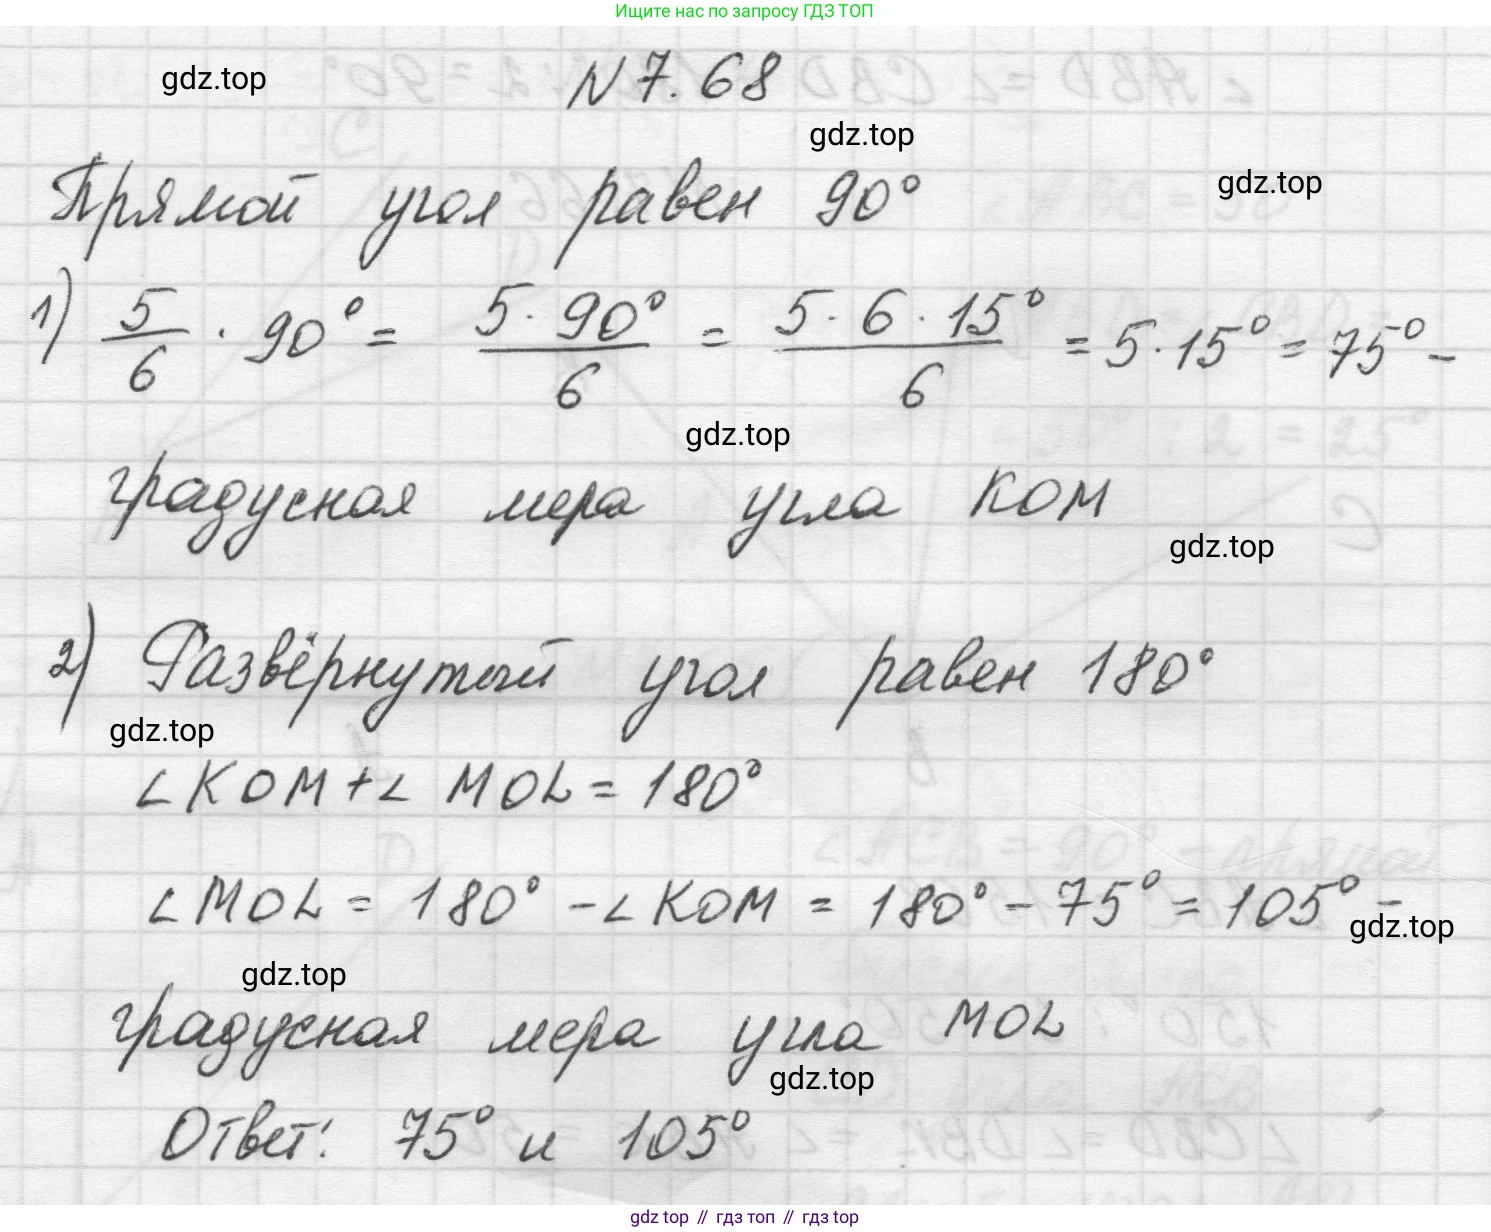 Ищите нас по запросу ГДЗ ТОП
N 7.68
gdz.top
gdz.top
Прямой угол равен 90°
gdz.top
1) 5/6 · 90° = 5 · 90°/6 = 5 · 6 · 15°/6 = 5 · 15° = 75° –
gdz.top
градусная мера угла KOM
gdz.top
2) Развёрнутый угол равен 180°
gdz.top
∠KOM + ∠MOL = 180°
∠MOL = 180° – ∠KOM = 180° – 75° = 105° –
gdz.top
gdz.top
градусная мера угла MOL
gdz.top
Ответ: 75° и 105°
gdz top // гдз топ // гдз top